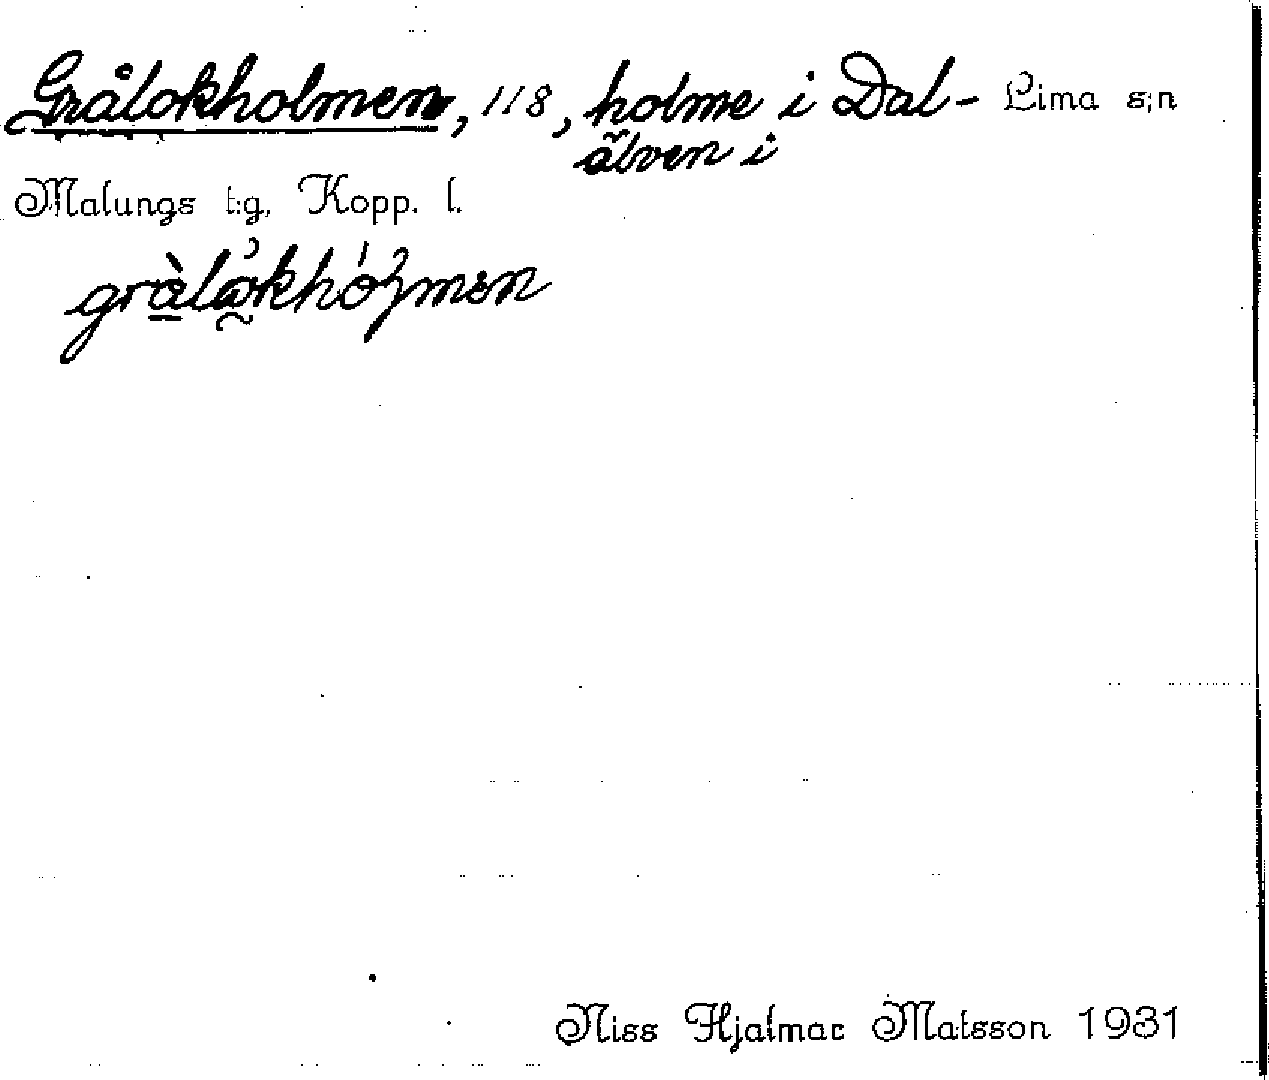 Grålokholmen, 118, holme i Dal- Lima s:n
älven i
Malungs t:g, Kopp. l.
Niss Hjalmar Matsson 1931